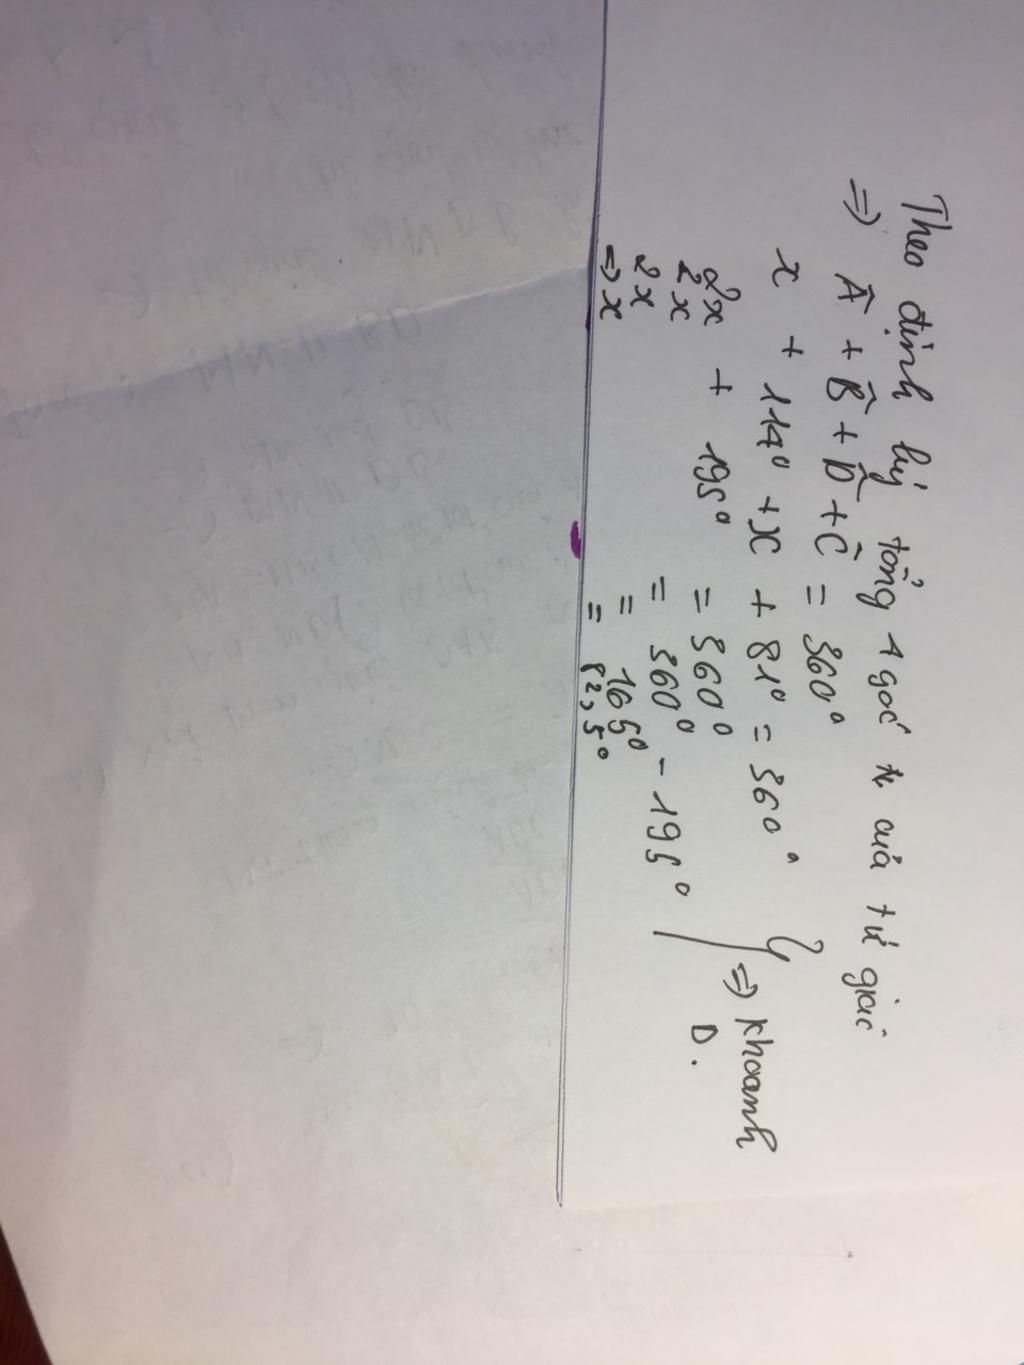 Theo định lý tổng 4 góc của tứ giác
=> Â + B̂ + D̂ + Ĉ = 360°
x + 114° + x + 81° = 360°
2x + 195° = 360°
2x = 360° - 195°
2x = 165°
=> x = 82,5°
=> Khoanh
D.